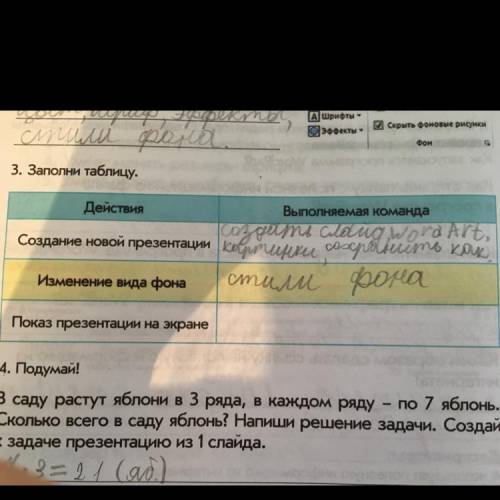 цвет, шрифт, эффекты,
стили фона.
Шрифты
Эффекты
Скрыть фоновые рисунки
Фон
3. Заполни таблицу.
Действия
Выполняемая команда
Создание новой презентации
создать слайд, word Art,
картинки, сохранить как.
Изменение вида фона
стили фона
Показ презентации на экране
4. Подумай!
В саду растут яблони в 3 ряда, в каждом ряду – по 7 яблонь.
Сколько всего в саду яблонь? Напиши решение задачи. Создай
к задаче презентацию из 1 слайда.
3=21 (яб.)